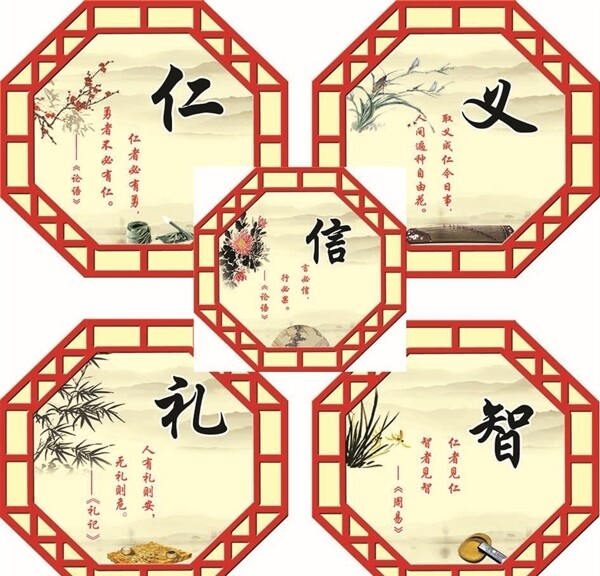 仁
仁者必有勇，
勇者不必有仁。
——《论语》
义
取义成仁今日事，
人间遍种自由花。
信
言必信，
行必果。
——《论语》
礼
人有礼则安，
无礼则危。
——《礼记》
智
仁者见仁
智者见智
——《周易》